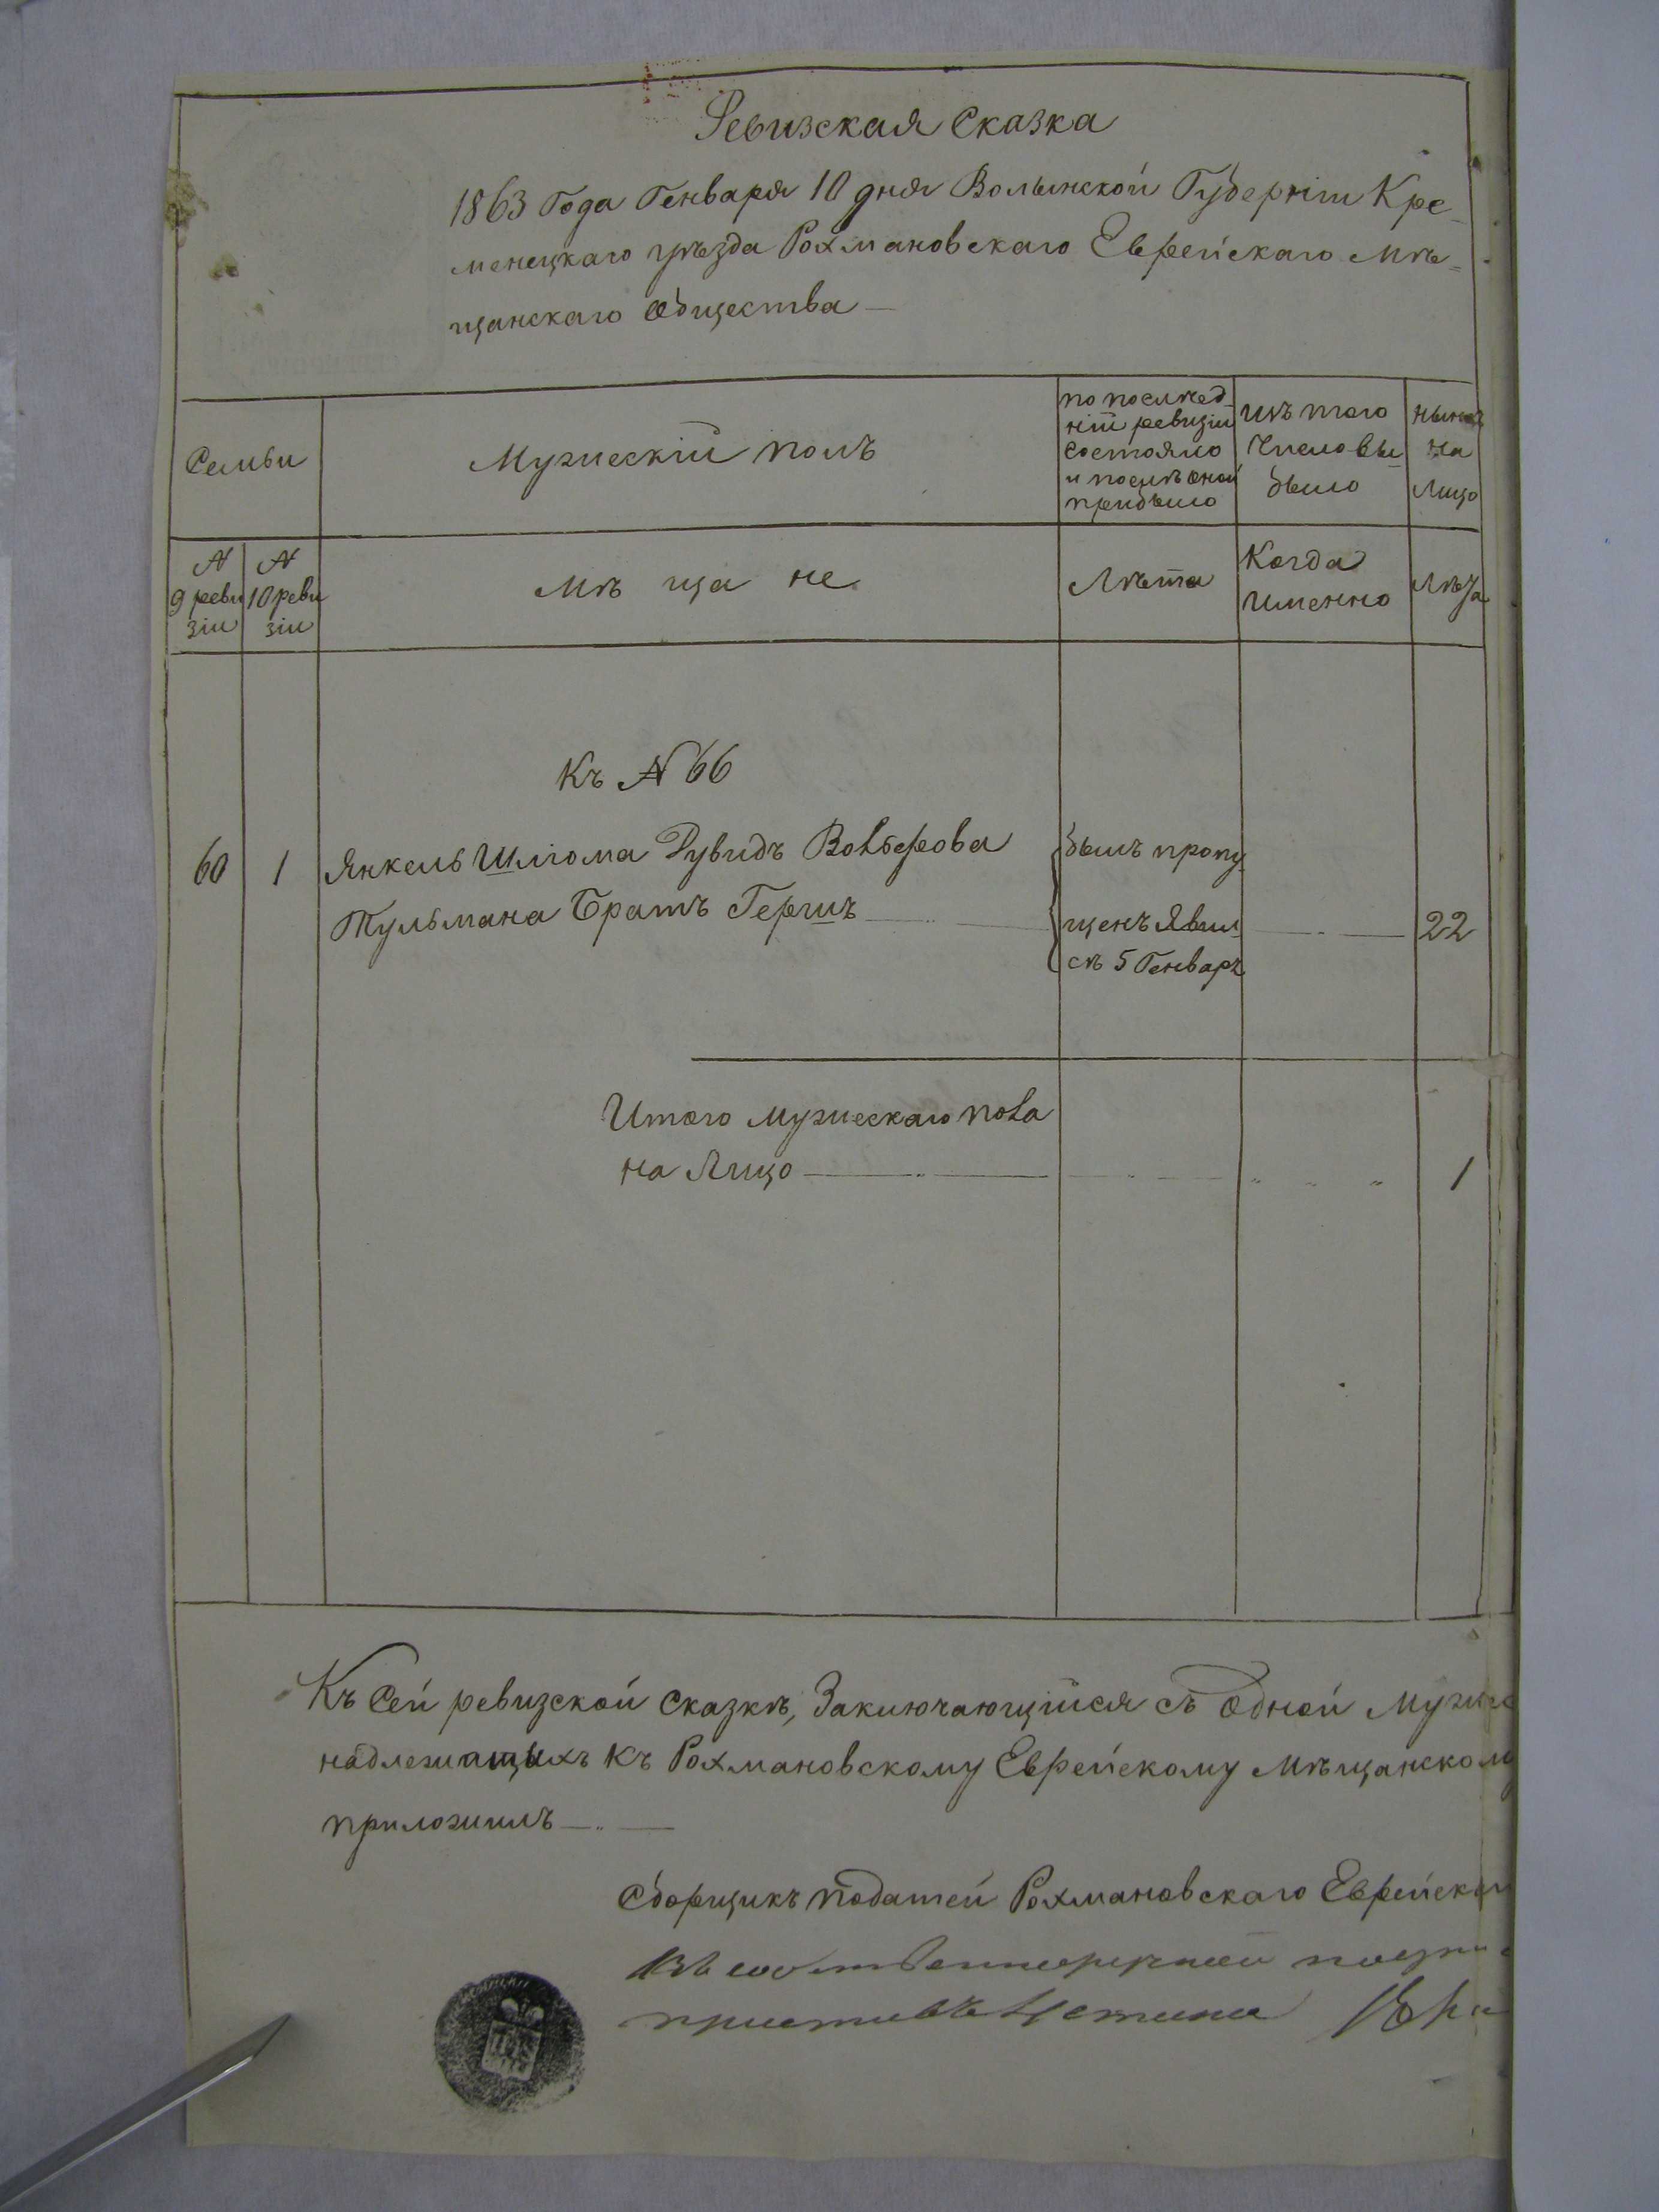 Ревизская Сказка
1863 Года Генваря 10 дня Волынской Губерніи Кре-
менецкаго уѣзда Рохмановскаго Еврейскаго Мѣ-
щанскаго Общества
Семьи
Мужескій полъ
по послѣд-
ній ревизіи
состояло
и послѣ оной
прибыло
изъ того
числа вы-
было
нынѣ
на
Лицо
№ 9 ревизіи
№ 10 ревизіи
Мѣщане
Лѣта
Когда
Именно
Лѣта
Къ № 66
60 1 Янкель Шліома Рувидъ Вольфова
Тульмана Братъ Гершъ
былъ пропу-
щенъ Явил-
сѣ 5 Генваря
22
Итого мужескаго пола
на Лицо 1
Къ Сей ревизской Сказкѣ, Заключающійся съ Одной
надлежащихъ къ Рохмановскому Еврейскому Мѣщанскому
приложилъ
Сборщикъ Податей Рохмановскаго